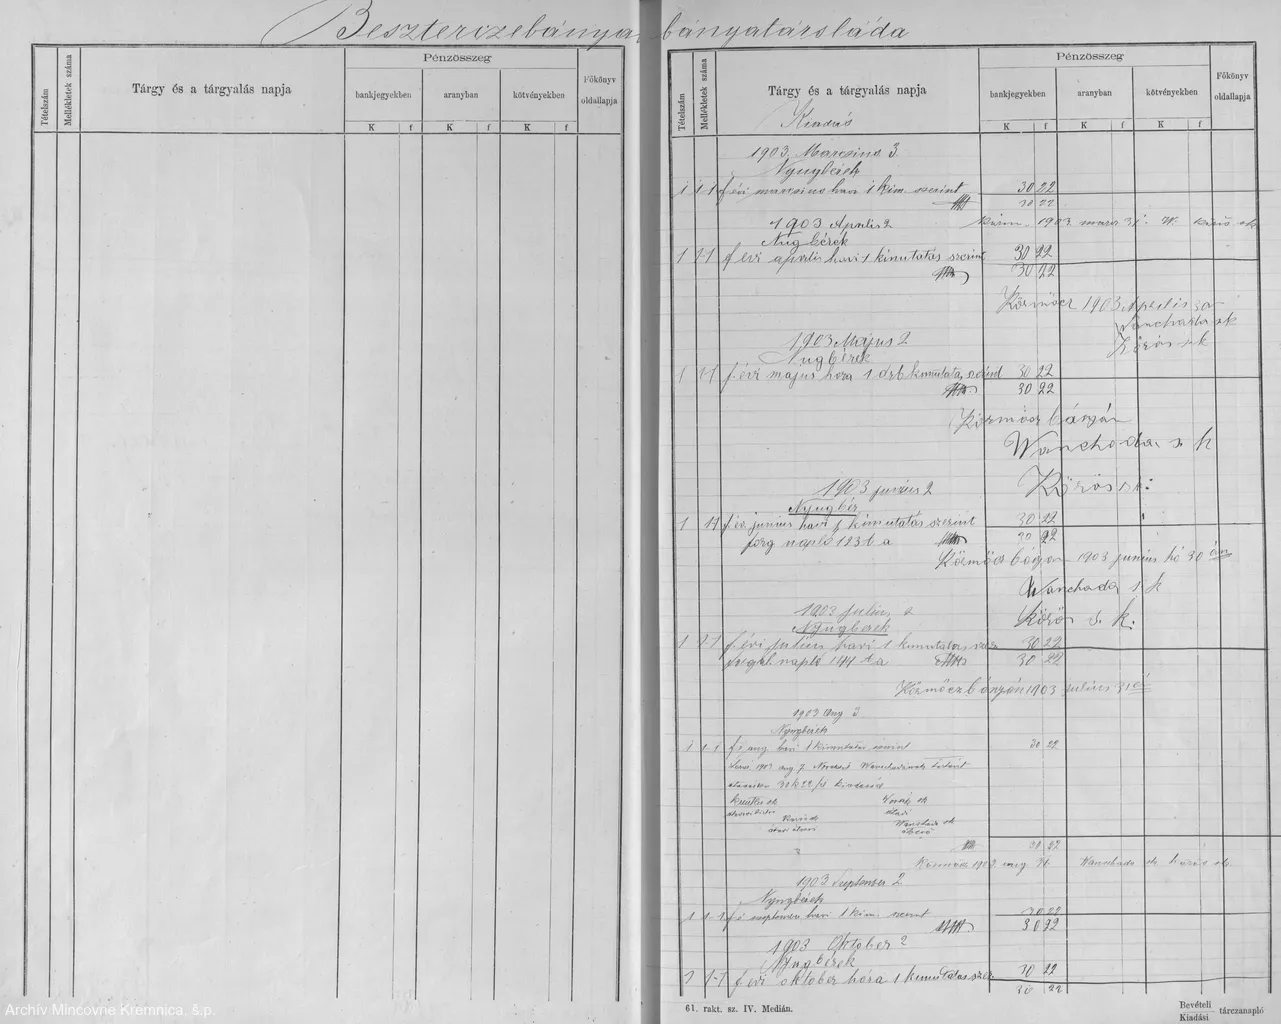 Beszterczebánya bányatársláda
Tételszám
Mellékletek száma
Tárgy és a tárgyalás napja
Pénzösszeg
bankjegyekben
aranyban
kötvényekben
Főkönyv oldallapja
K f K f K f
Tételszám
Mellékletek száma
Tárgy és a tárgyalás napja
Pénzösszeg
bankjegyekben
aranyban
kötvényekben
Főkönyv oldallapja
K f K f K f
Kiadás
1903 Marczius 3
Nyugbérek
1 1-1 f. évi marczius havi 1 kim. szerint 30 22
30 22
1903 Április 2
1903. marcz 31. W. Kőrös sk
Nugbérek
1 1-1 f. évi április havi 1 kimutatás szerint 30 22
30 22
Körmöcz 1903 Április 30
Wanchada sk
Kőrös s k
1903 Május 2
Nugbérek
1 1-1 f. évi május hóra 1 drb kimutatás szerint 30 22
30 22
Körmöczbányán
Wanchada s k
Kőrös s k:
1903 junius 2
Nyugbér
1 1-1 f. év junius havi 1 kimutatás szerint 30 22
forg napló 123 b a 30 22
Körmöczbányán 1903 junius hó 30 án
Wanchada s k
Kőrös s. k:
1903 julius 2
Nyugberek
1 1-1 f. évi julius havi 1 kimutatás szer 30 22
napló 144 a 30 22
Körmöczbányán 1903 julius 31 én
1903 Aug 3
Nyugbérek
1 1-1 f. é. aug. havi 1 kimutatás szerint 30 22
1903 aug. 7. Wanchadának
30 k 22 f kiadásról
sk
Wanchada sk
30 22
Körmöcz 1903 aug 31 Wanchada sk Kőrös sk
1903 Szeptember 2
Nyugbérek
1 1-1 f. é. szeptember havi 1 kim. szerint 30 22
30 22
1903 Oktober 2
Nyugbérek
1 1-1 f. évi oktober hóra 1 kimutatás szer. 30 22
30 22
61. rakt. sz. IV. Medián.
Bevételi
Kiadási
tárczanapló
Archív Mincovne Kremnica, š.p.